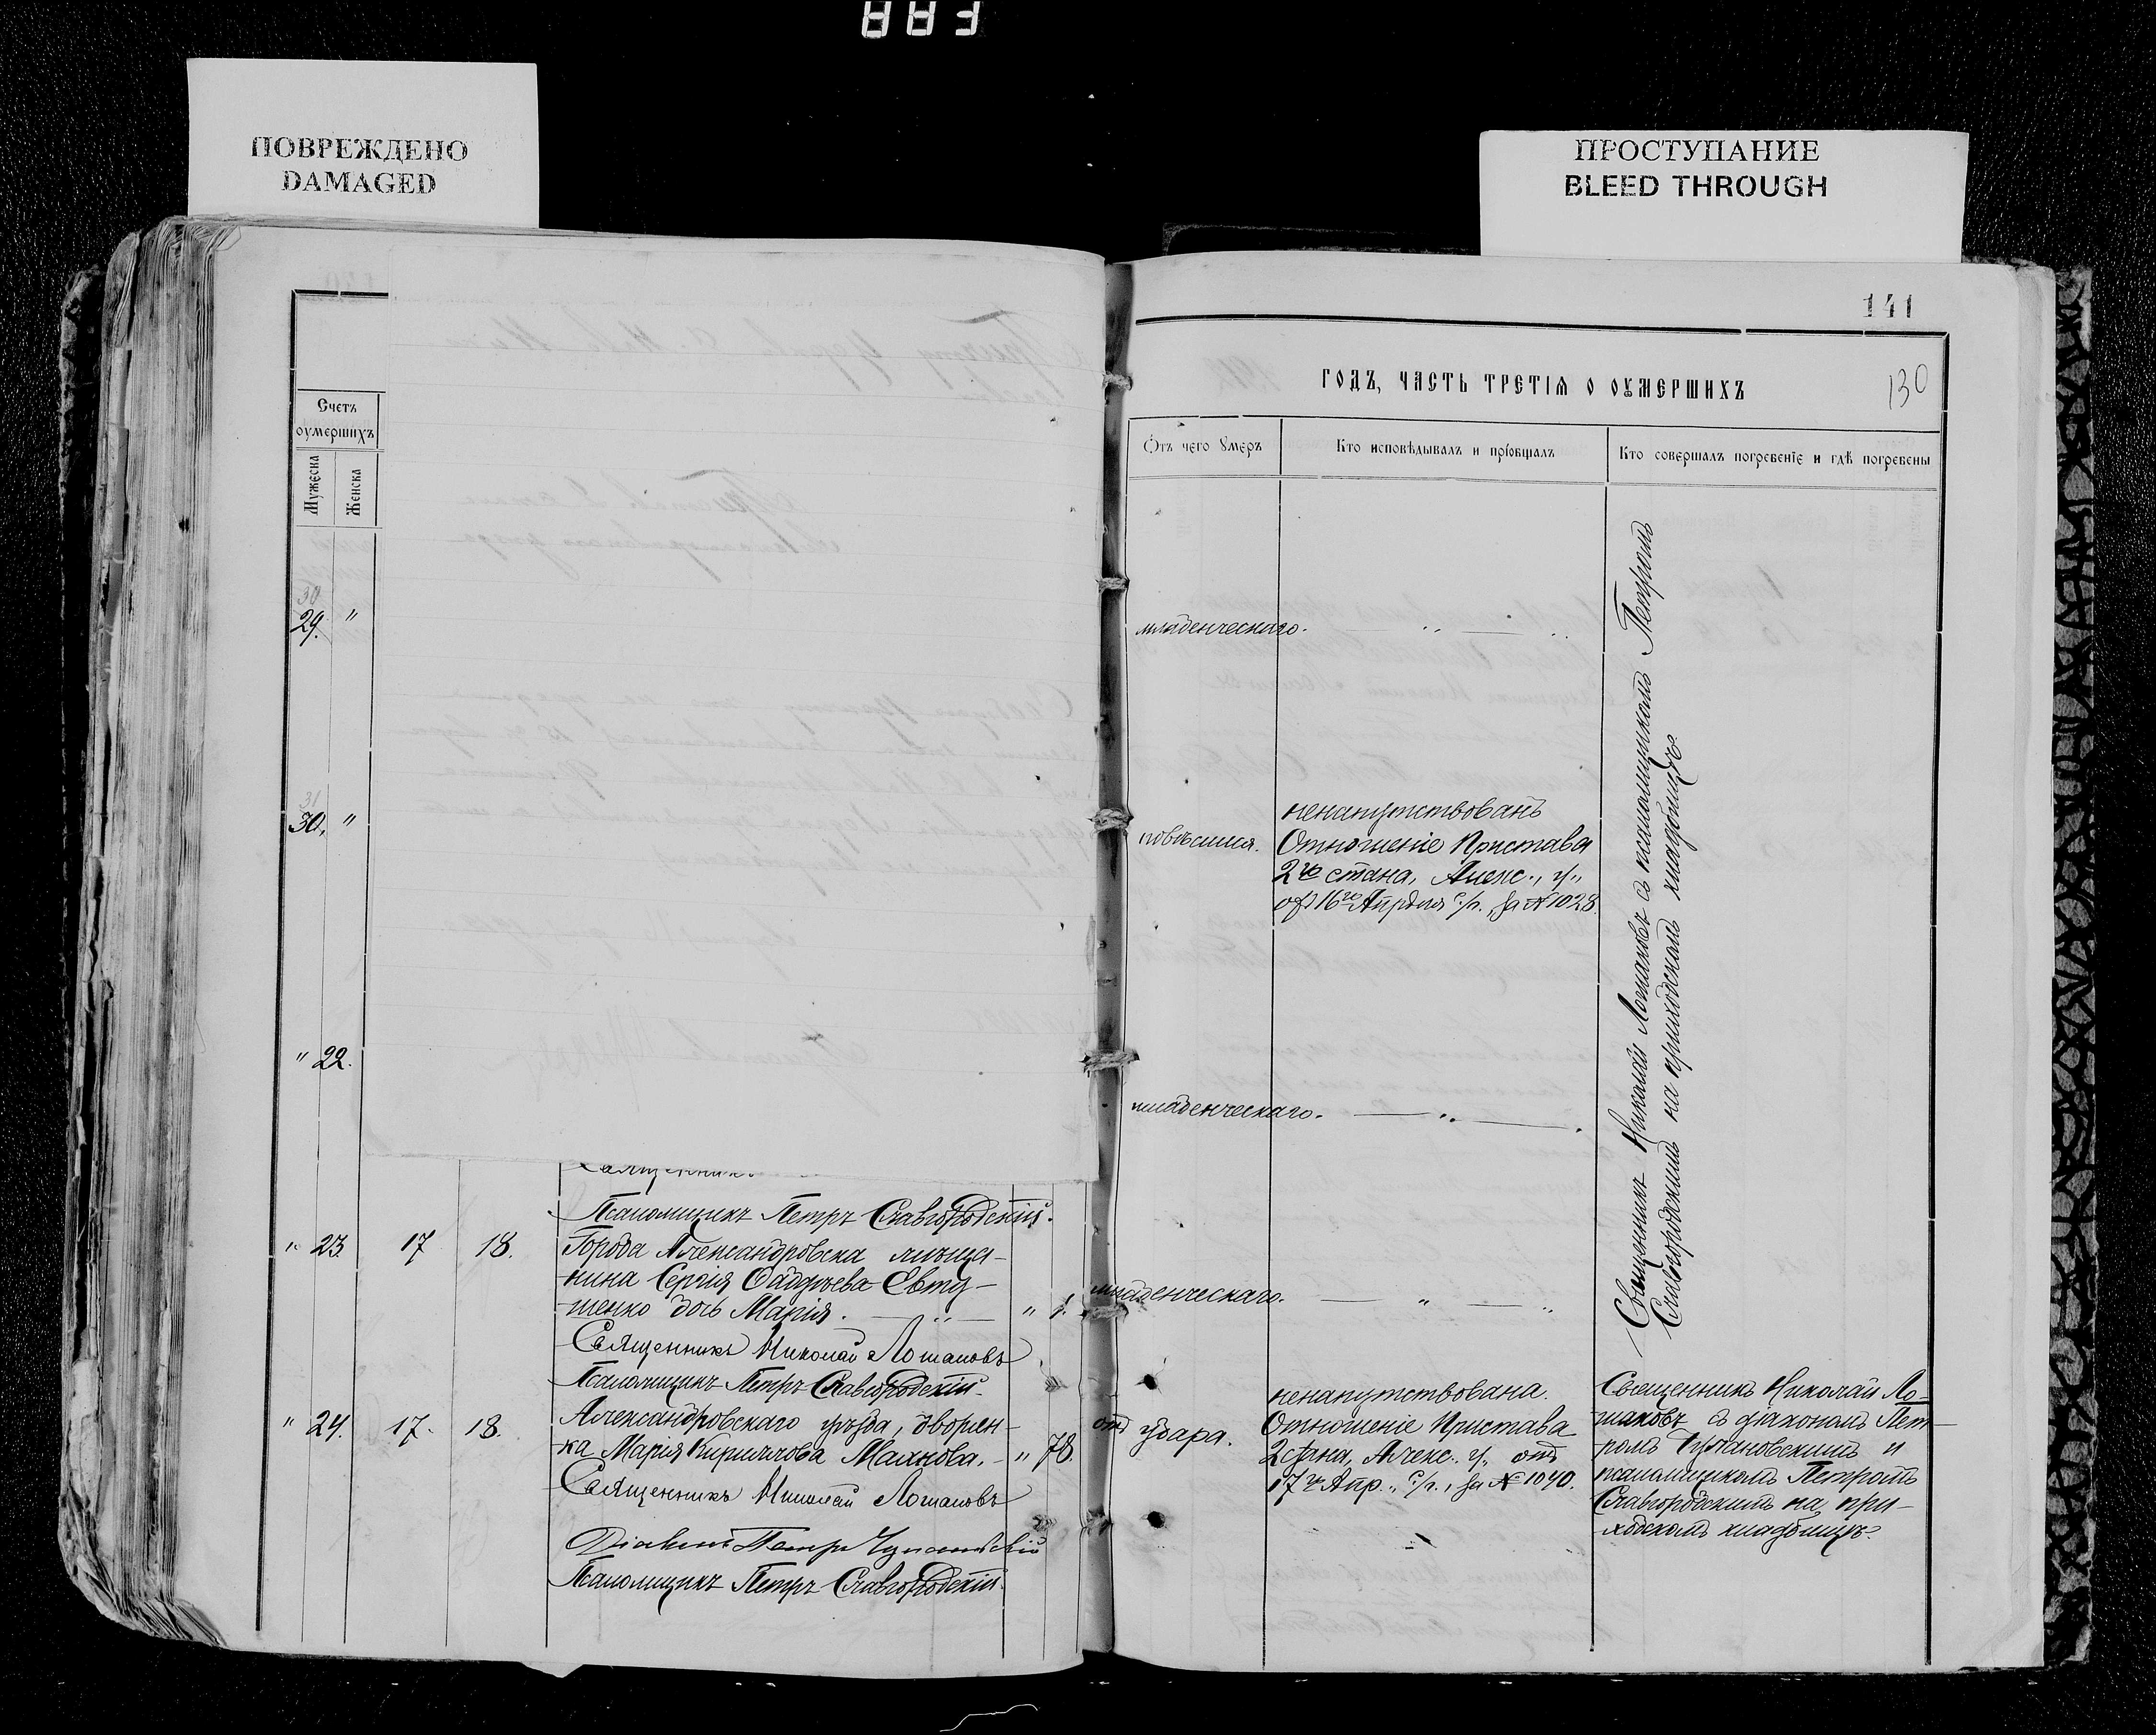 ПОВРЕЖДЕНО
DAMAGED
ПРОСТУПАНИЕ
BLEED THROUGH
Счетъ
оумершихъ
Мужеска
Женска
30
29. "
31
30. "
" 22.
Священникъ
Псаломщикъ Петръ Славгородскій.
" 23 17 18. Города Александровска мѣща-
нина Сергія Евту-
шенко дочь Марія. " 1.
Священникъ Николай Лошаковъ
Псаломщикъ Петръ Славгородскій.
" 24. 17. 18. Александровскаго уѣзда, дворян-
ка Марія Кириллова " 78.
Священникъ Николай Лошаковъ
Діаконъ Петръ
Псаломщикъ Петръ Славгородскій.
141
130
ГОДЪ, ЧАСТЬ ТРЕТІѦ О ОУМЕРШИХЪ
Ѿтъ чего Умеръ
Кто исповѣдывалъ и пріобщалъ
Кто совершалъ погребеніе и гдѣ погребены
младенческаго.
ненапутствованъ
повѣсился. Отношеніе Пристава
2го стана, Алекс., у.,
отъ 16го Апрѣля с/г., за № 1028.
младенческаго.
младенческаго.
Священникъ Николай Лошаковъ съ псаломщикомъ Петромъ
Славгородскимъ на приходскомъ кладбищѣ.
отъ удара.
ненапутствована.
Отношеніе Пристава
2 стана, Алекс. у. отъ
17го Апр., с/г., за № 1040.
Священникъ Николай Ло-
шаковъ съ діакономъ Пет-
ромъ и
псаломщикомъ Петромъ
Славгородскимъ на при-
ходскомъ кладбищѣ.